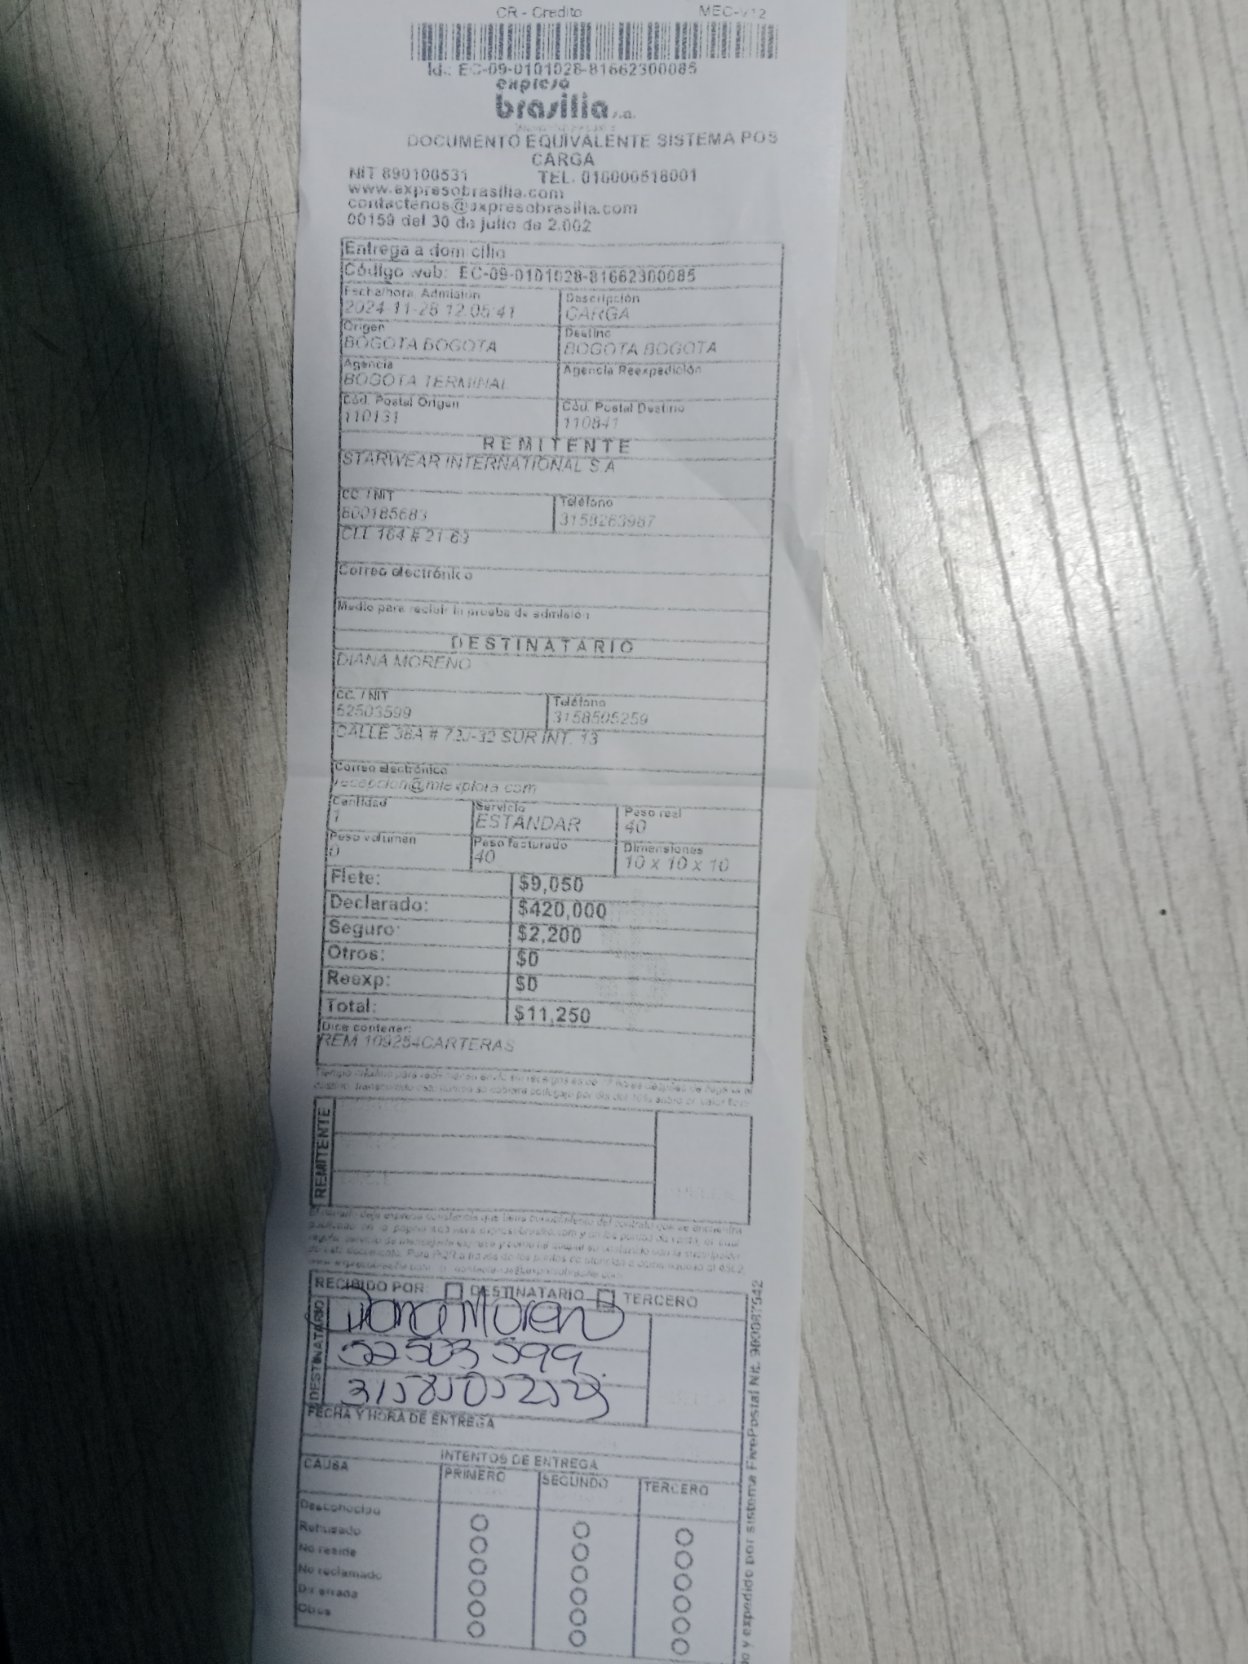 CR - Credito MEC-V12
Id.: EC-09-0101028-81662300085
expreso
brasilia s.a.
DOCUMENTO EQUIVALENTE SISTEMA POS
CARGA
NIT 890100531 TEL. 018000518001
www.expresobrasilia.com
contactenos@expresobrasilia.com
00159 del 30 de julio de 2.002
Entrega a domicilio
Código web: EC-09-0101028-81662300085
Fecha/hora Admisión Descripción
2024-11-28 12:05:41 CARGA
Origen Destino
BOGOTA BOGOTA BOGOTA BOGOTA
Agencia Agencia Reexpedición
BOGOTA TERMINAL
Cód. Postal Origen Cód. Postal Destino
110131 110841
REMITENTE
STARWEAR INTERNATIONAL S A
CC. / NIT Teléfono
800185683 3158263987
CLL 164 # 21-63
Correo electrónico
Medio para recibir la prueba de admisión
DESTINATARIO
DIANA MORENO
CC. / NIT Teléfono
52503599 3158505259
CALLE 38A # 72J-32 SUR INT. 13
Correo electrónico
recepcion@miexplora.com
Cantidad Servicio Peso real
1 ESTANDAR 40
Peso volumen Peso facturado Dimensiones
0 40 10 x 10 x 10
Flete: $9,050
Declarado: $420,000
Seguro: $2,200
Otros: $0
Reexp: $0
Total: $11,250
Dice contener:
REM 109254CARTERAS
REMITENTE
RECIBIDO POR: DESTINATARIO TERCERO
DESTINATARIO
Diana Moreno
52503599
FECHA Y HORA DE ENTREGA
INTENTOS DE ENTREGA
CAUSA PRIMERO SEGUNDO TERCERO
Desconocido
Rehusado
No reside
No reclamado
Dir errada
Otros
y expedido por sistema FivePostal Nit. 900087542